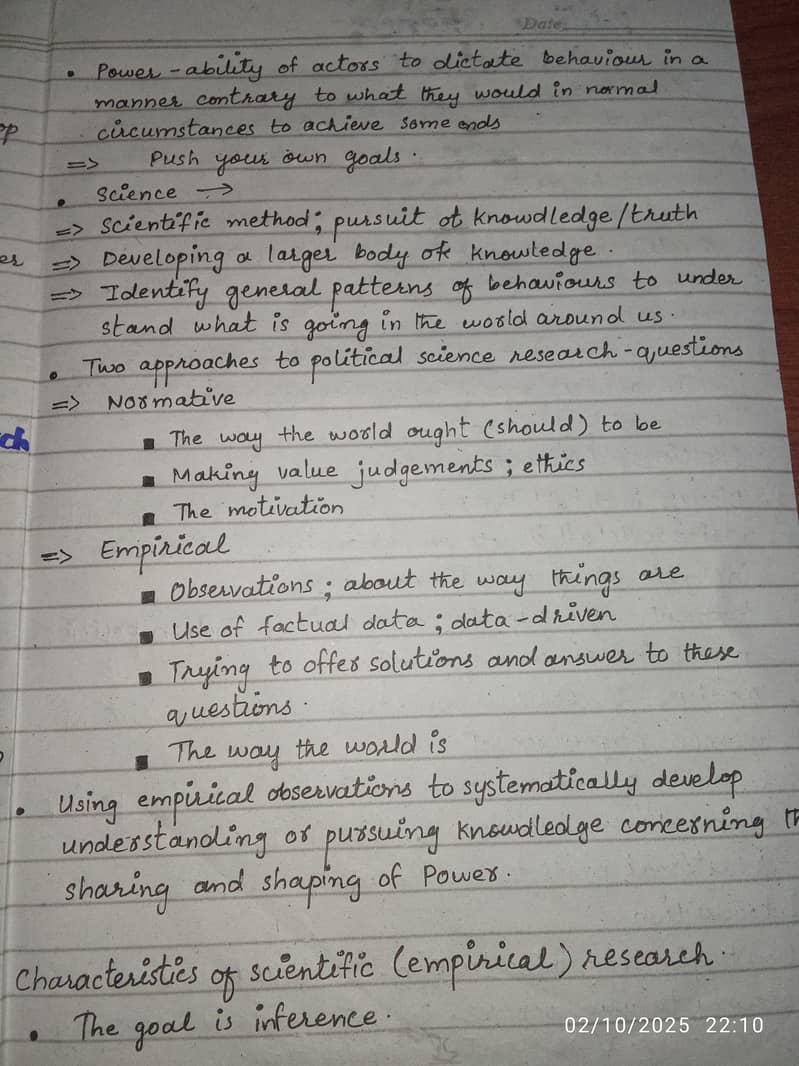 Date
• Power - ability of actors to dictate behaviour in a
manner contrary to what they would in normal
circumstances to achieve some ends
=> Push your own goals.
• Science →
=> Scientific method; pursuit of knowdledge/truth
=> Developing a larger body of knowledge.
=> Identify general patterns of behaviours to under
stand what is going in the world around us.
• Two approaches to political science research-questions
=> Normative
▪ The way the world ought (should) to be
▪ Making value judgements; ethics
▪ The motivation
=> Empirical
▪ Observations; about the way things are
▪ Use of factual data; data-driven
▪ Trying to offer solutions and answer to these
questions.
▪ The way the world is
• Using empirical observations to systematically develop
understanding or pursuing knowdledge concerning th
sharing and shaping of Power.
Characteristics of scientific (empirical) research.
• The goal is inference.
02/10/2025 22:10